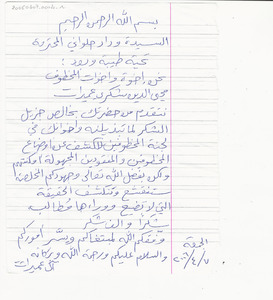 بسم الله الرحمن الرحيم
السيدة وداد حلواني المحترمة
تحية طيبة وبعد :
نحن إخوة وأخوات المخطوف
محيي الدين شكري عميرات
نتقدم من حضرتك بخالص جزيل
الشكر لما تبذلينه وأخوانك في
لجنة المخطوفين للكشف عن أوضاع
المخطوفين والمفقودين المجهولة
ولكن بفضل الله تعالى وجهودكم المخلصة
ستنقشع وتنكشف الحقيقة
التي لا تضيع ووراءها مطالب
شكراً والف شكر
وفقكم الله لمبتغاكم ويسّر أموركم
والسلام عليكم ورحمة الله وبركاته
آل عميرات